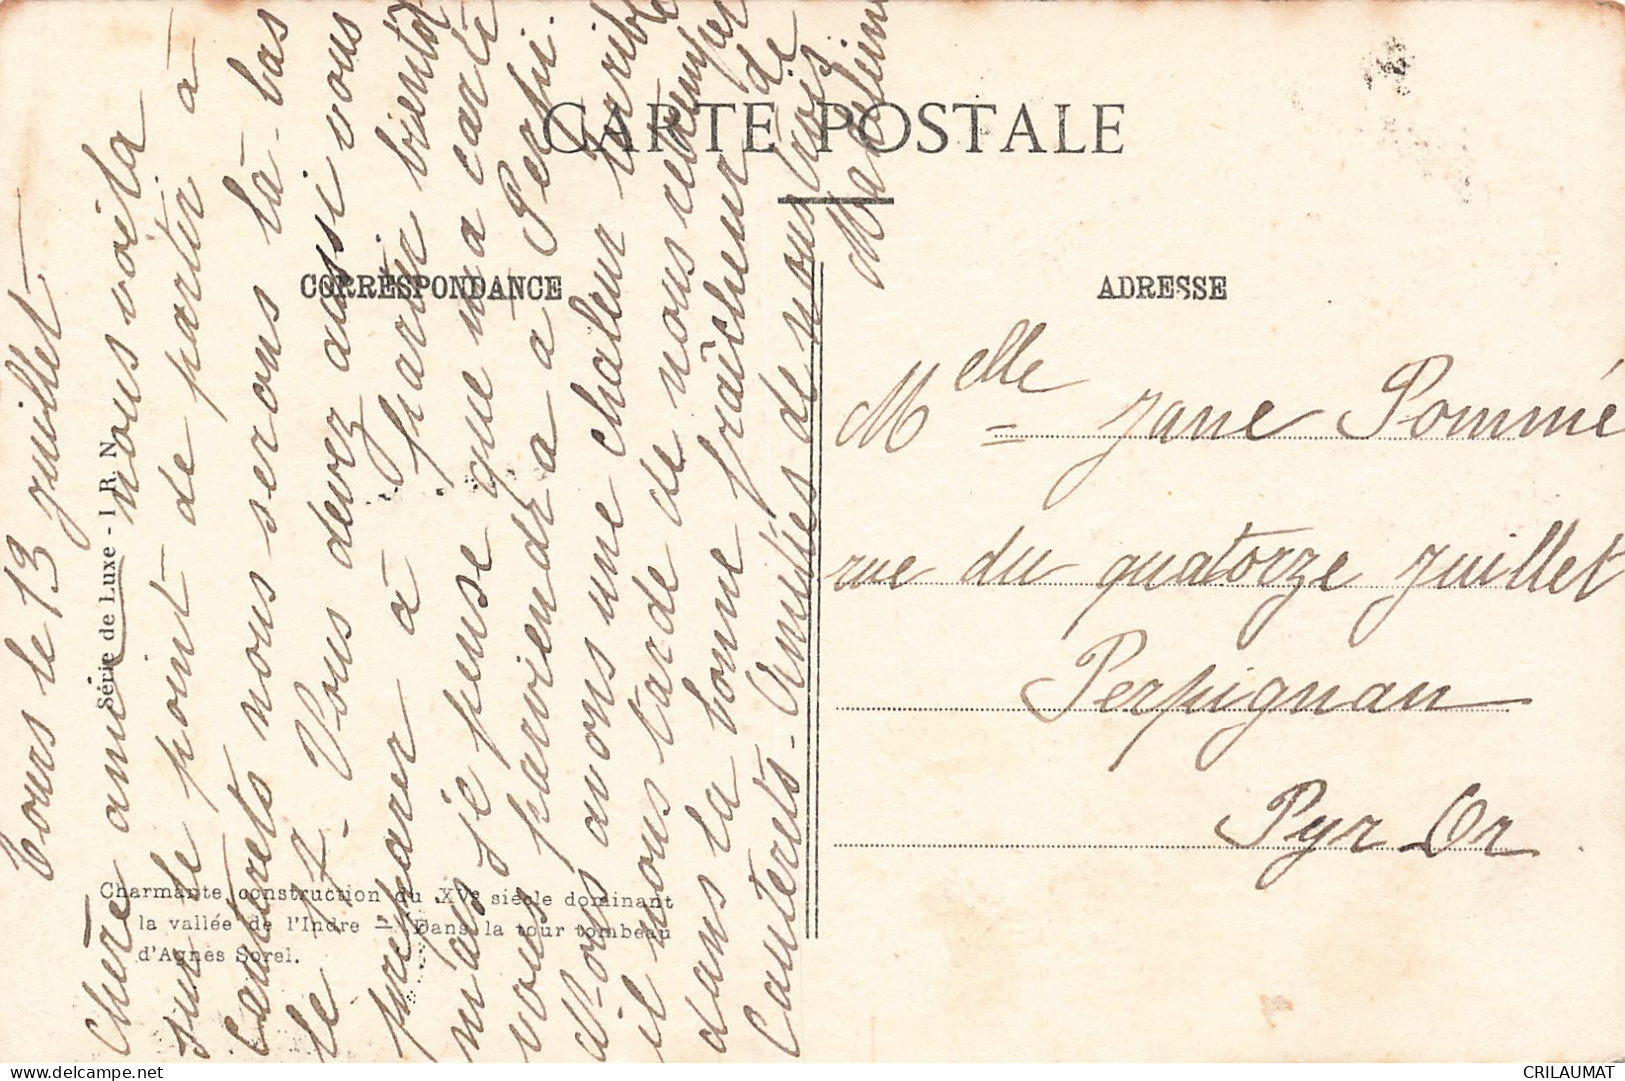 CARTE POSTALE
CORRESPONDANCE
ADRESSE
Série de Luxe - I R N
Tours le 13 juillet
Chère amie nous voilà
sur le point de partir à
Cauterets nous serons là-bas
le 17. Vous devez aussi vous
préparer à partir bientôt
mais je pense que ma carte
vous parviendra à Perpi.
Nous avons une chaleur terrible
il nous tarde de nous retremper
dans la bonne fraîcheur de
Cauterets. Amitiés de nous trois
Madeleine
Melle Jane Pommé
rue du quatorze juillet
Perpignan
Pyr Or
Charmante construction du XVe siècle dominant
la vallée de l'Indre — Dans la tour tombeau
d'Agnès Sorel.
delcampe.net
CRILAUMAT